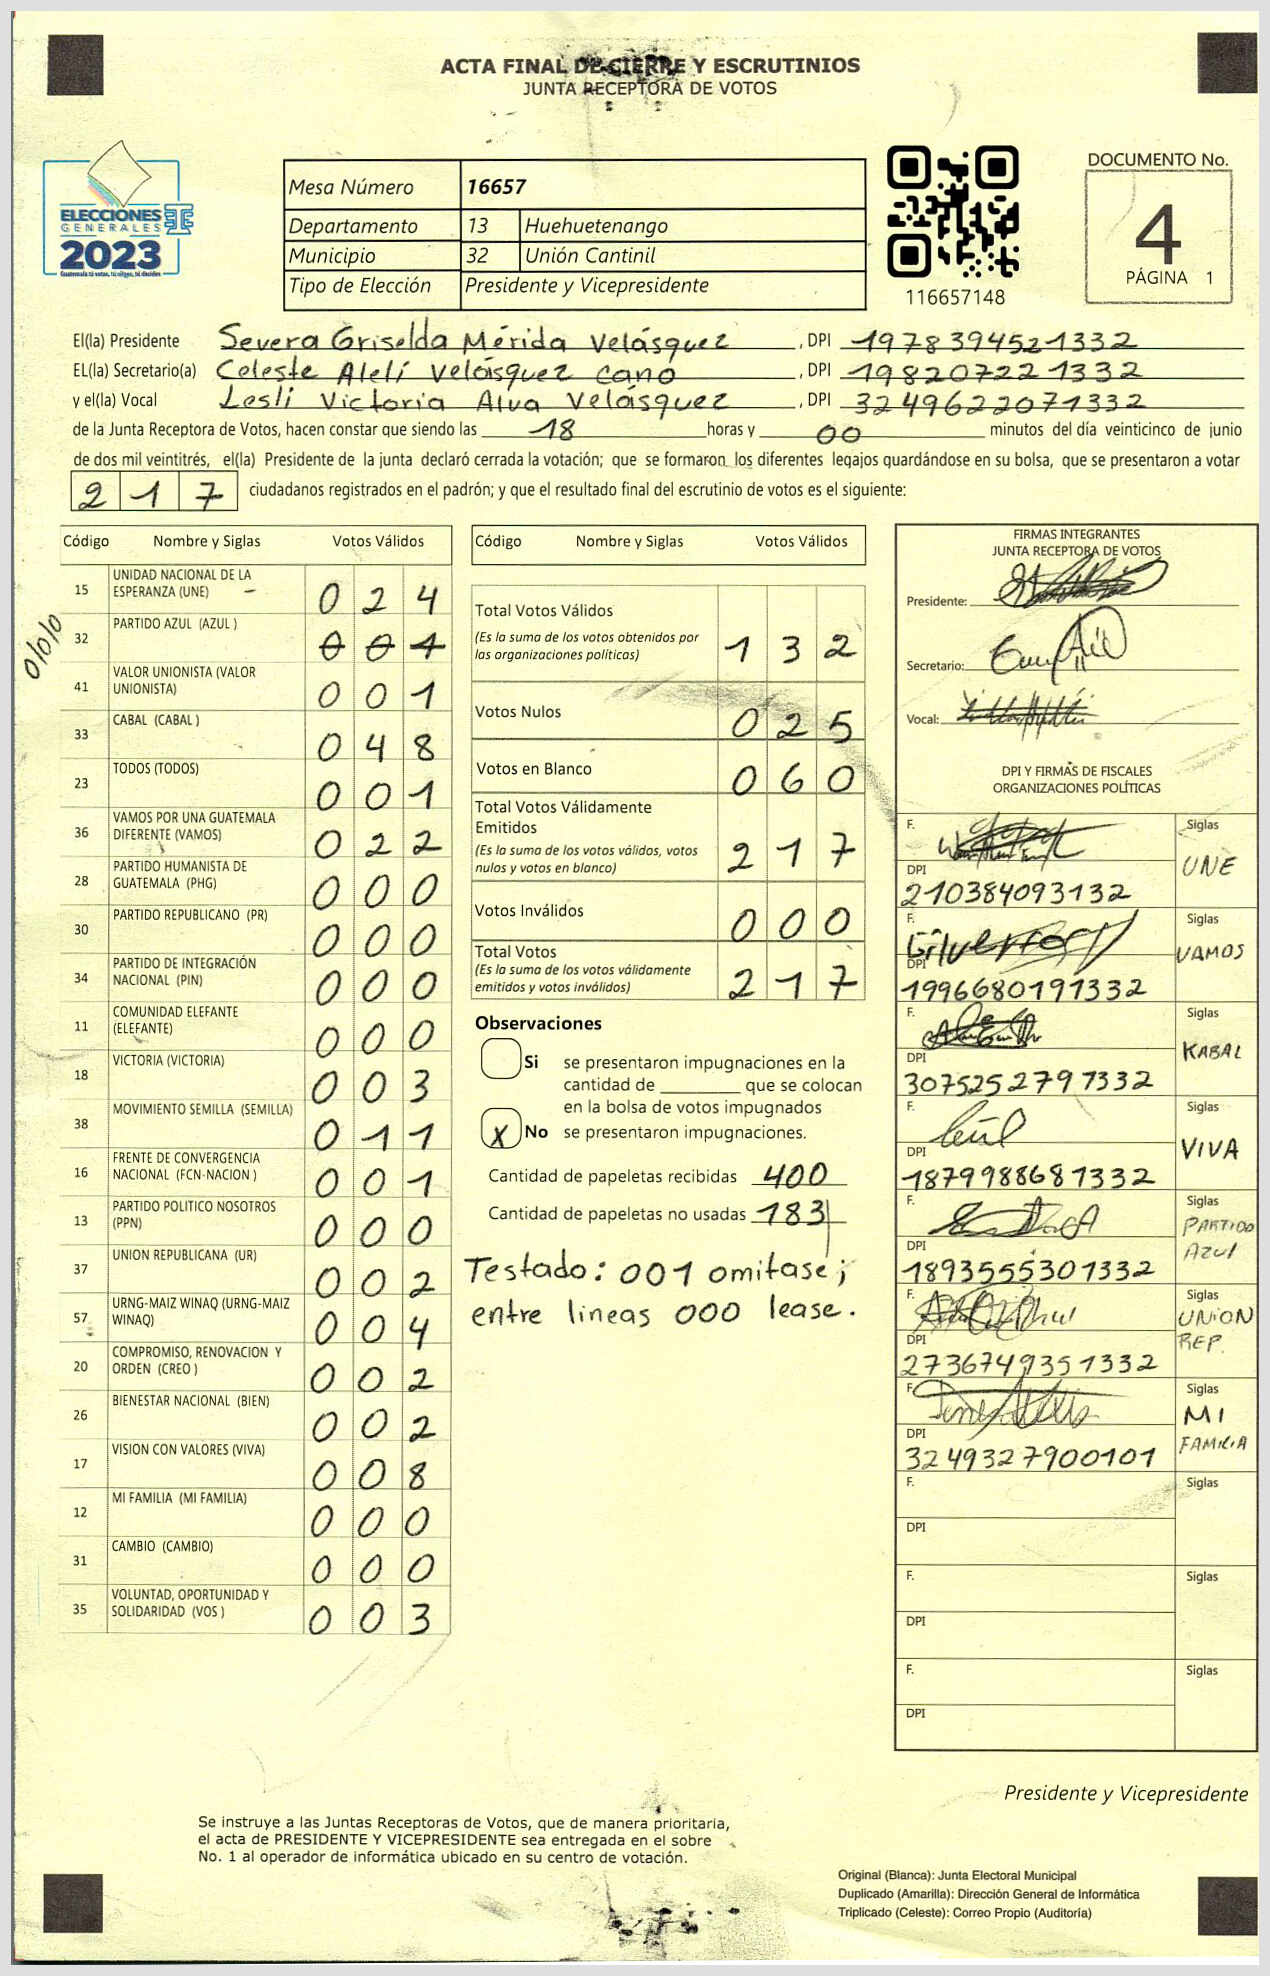 ACTA FINAL DE CIERRE Y ESCRUTINIOS
JUNTA RECEPTORA DE VOTOS
ELECCIONES
GENERALES
2023
Guatemala tú votas, tú eliges, tú decides
Mesa Número 16657
Departamento 13 Huehuetenango
Municipio 32 Unión Cantinil
Tipo de Elección Presidente y Vicepresidente
116657148
DOCUMENTO No.
4
PÁGINA 1
El(la) Presidente Severa Griselda Mérida Velásquez, DPI 1978394521332
EL(la) Secretario(a) Celeste Alelí Velásquez cano, DPI 1982072221332
y el(la) Vocal Lesli Victoria Alva Velásquez, DPI 3249622071332
de la Junta Receptora de Votos, hacen constar que siendo las 18 horas y 00 minutos del día veinticinco de junio
de dos mil veintitrés, el(la) Presidente de la junta declaró cerrada la votación; que se formaron los diferentes legajos guardándose en su bolsa, que se presentaron a votar
217 ciudadanos registrados en el padrón; y que el resultado final del escrutinio de votos es el siguiente:
Código Nombre y Siglas Votos Válidos
15 UNIDAD NACIONAL DE LA ESPERANZA (UNE) 024
0/0/0
32 PARTIDO AZUL (AZUL ) 001
41 VALOR UNIONISTA (VALOR UNIONISTA) 001
33 CABAL (CABAL ) 048
23 TODOS (TODOS) 001
36 VAMOS POR UNA GUATEMALA DIFERENTE (VAMOS) 022
28 PARTIDO HUMANISTA DE GUATEMALA (PHG) 000
30 PARTIDO REPUBLICANO (PR) 000
34 PARTIDO DE INTEGRACIÓN NACIONAL (PIN) 000
11 COMUNIDAD ELEFANTE (ELEFANTE) 000
18 VICTORIA (VICTORIA) 003
38 MOVIMIENTO SEMILLA (SEMILLA) 011
16 FRENTE DE CONVERGENCIA NACIONAL (FCN-NACION ) 001
13 PARTIDO POLITICO NOSOTROS (PPN) 000
37 UNION REPUBLICANA (UR) 002
57 URNG-MAIZ WINAQ (URNG-MAIZ WINAQ) 004
20 COMPROMISO, RENOVACION Y ORDEN (CREO ) 002
26 BIENESTAR NACIONAL (BIEN) 002
17 VISION CON VALORES (VIVA) 008
12 MI FAMILIA (MI FAMILIA) 000
31 CAMBIO (CAMBIO) 000
35 VOLUNTAD, OPORTUNIDAD Y SOLIDARIDAD (VOS ) 003
Código Nombre y Siglas Votos Válidos
Total Votos Válidos 132
(Es la suma de los votos obtenidos por
las organizaciones políticas)
Votos Nulos 025
Votos en Blanco 060
Total Votos Válidamente
Emitidos 217
(Es la suma de los votos válidos, votos
nulos y votos en blanco)
Votos Inválidos 000
Total Votos 217
(Es la suma de los votos válidamente
emitidos y votos inválidos)
Observaciones
Si se presentaron impugnaciones en la
cantidad de ________ que se colocan
en la bolsa de votos impugnados
X No se presentaron impugnaciones.
Cantidad de papeletas recibidas 400
Cantidad de papeletas no usadas 183
Testado: 001 omitase;
entre lineas 000 lease.
FIRMAS INTEGRANTES
JUNTA RECEPTORA DE VOTOS
Presidente:
Secretario:
Vocal:
DPI Y FIRMAS DE FISCALES
ORGANIZACIONES POLÍTICAS
F. Siglas
UNE
DPI
210384093132
F. Siglas
VAMOS
DPI
1996680191332
F. Siglas
KABAL
DPI
3075252797332
F. Siglas
VIVA
DPI
1879988681332
F. Siglas
PARTIDO
AZUL
DPI
1893555301332
F. Siglas
UNION
REP.
DPI
2736749351332
F. Siglas
MI
FAMILIA
DPI
3249327900101
F. Siglas
DPI
F. Siglas
DPI
F. Siglas
DPI
Presidente y Vicepresidente
Se instruye a las Juntas Receptoras de Votos, que de manera prioritaria,
el acta de PRESIDENTE Y VICEPRESIDENTE sea entregada en el sobre
No. 1 al operador de informática ubicado en su centro de votación.
Original (Blanca): Junta Electoral Municipal
Duplicado (Amarilla): Dirección General de Informática
Triplicado (Celeste): Correo Propio (Auditoría)